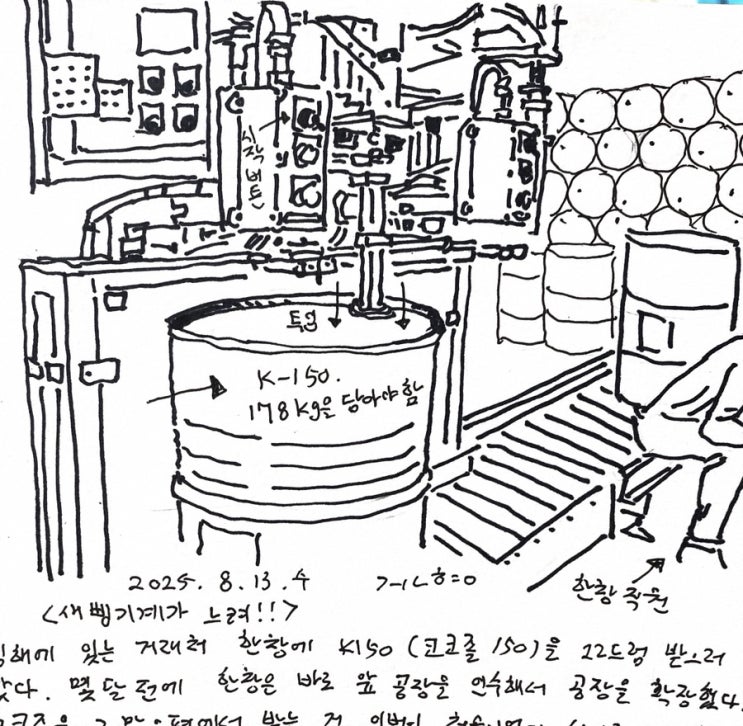 시작 버튼
K-150.
178kg을 담아야 함
2025. 8. 13. 수
한창 직원
<새삡기계가 느려!!>
있는 거래처 한창에 K150 (코코졸 150)을 22드럼 받으러
몇달 전에 한창은 바로 앞 공장을 인수해서 공장을 확장했다.